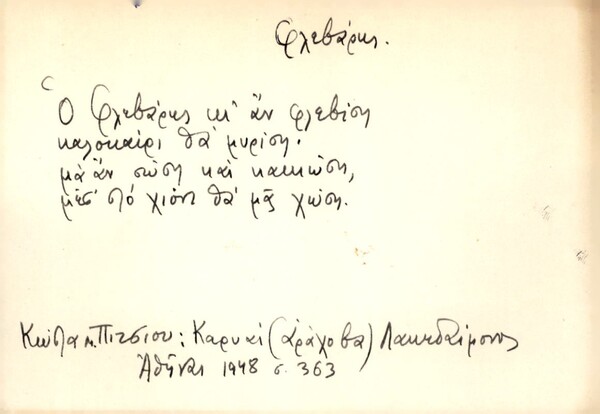 Φλεβάρης.
Ὁ Φλεβάρης κι' ἂν φλεβίση
καλοκαίρι θὰ μυρίση.
μὰ ἂν σώση καὶ κακιώση,
μέσ' στὸ χιόνι θὰ μᾶς χώση.
Κώστα π. Πίτσιου: Καρυαί (Ἀράχοβα) Λακεδαίμονος
Ἀθῆναι 1948 σ. 363